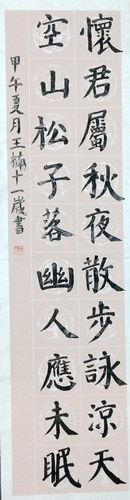 懷君屬秋夜散步詠涼天
空山松子落幽人應未眠
甲午夏月王赫十一歲書